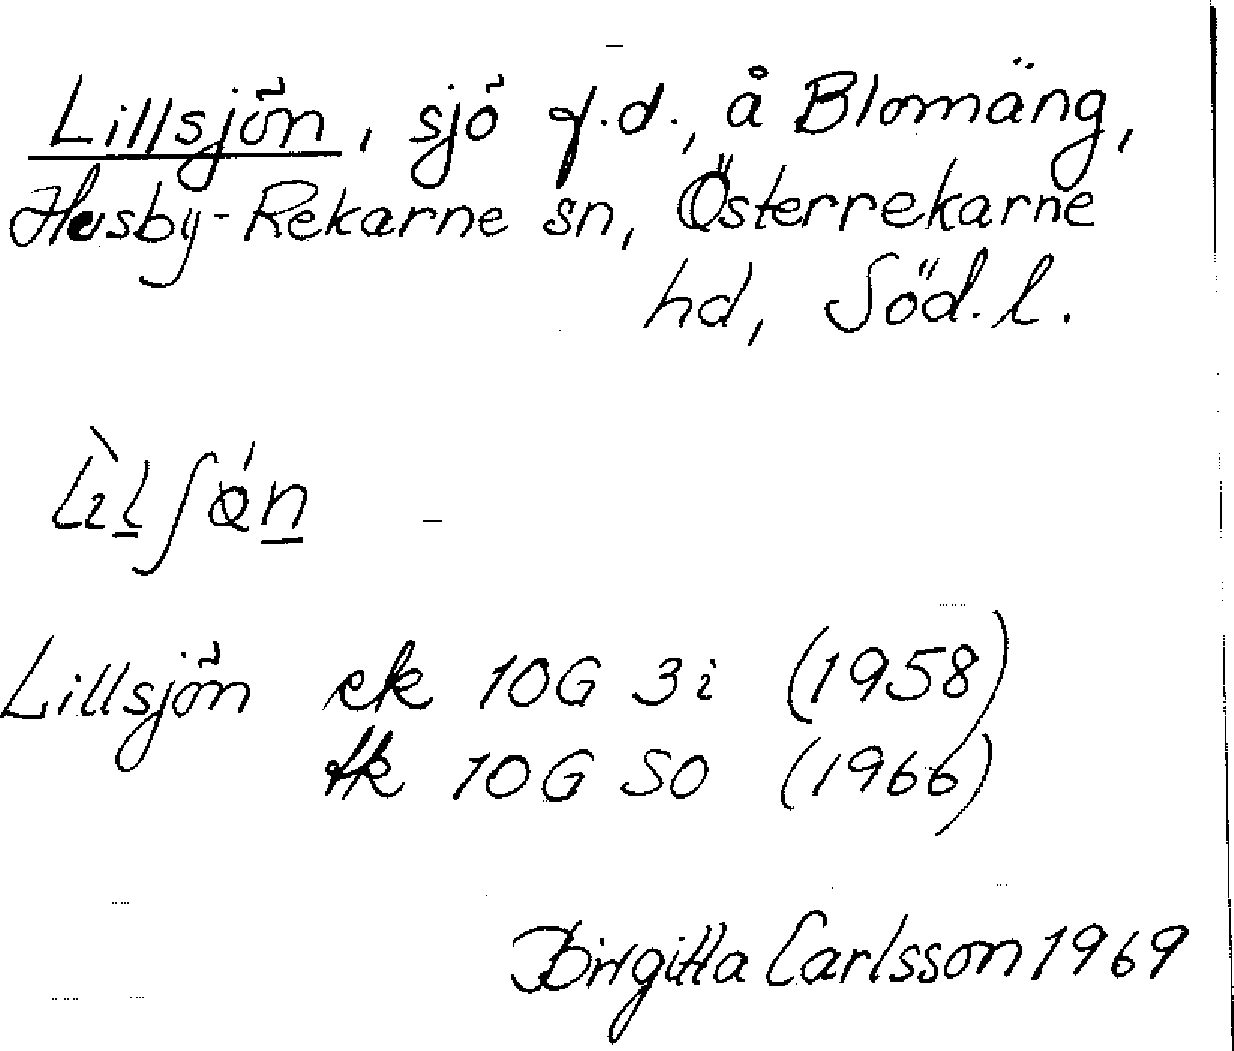 Lillsjön, sjö f.d., å Blomäng,
Husby-Rekarne sn, Österrekarne
hd, Söd. l.
Lillsjön ek 10G 3i (1958)
tk 10G SO (1966)
Birgitta Carlsson 1969